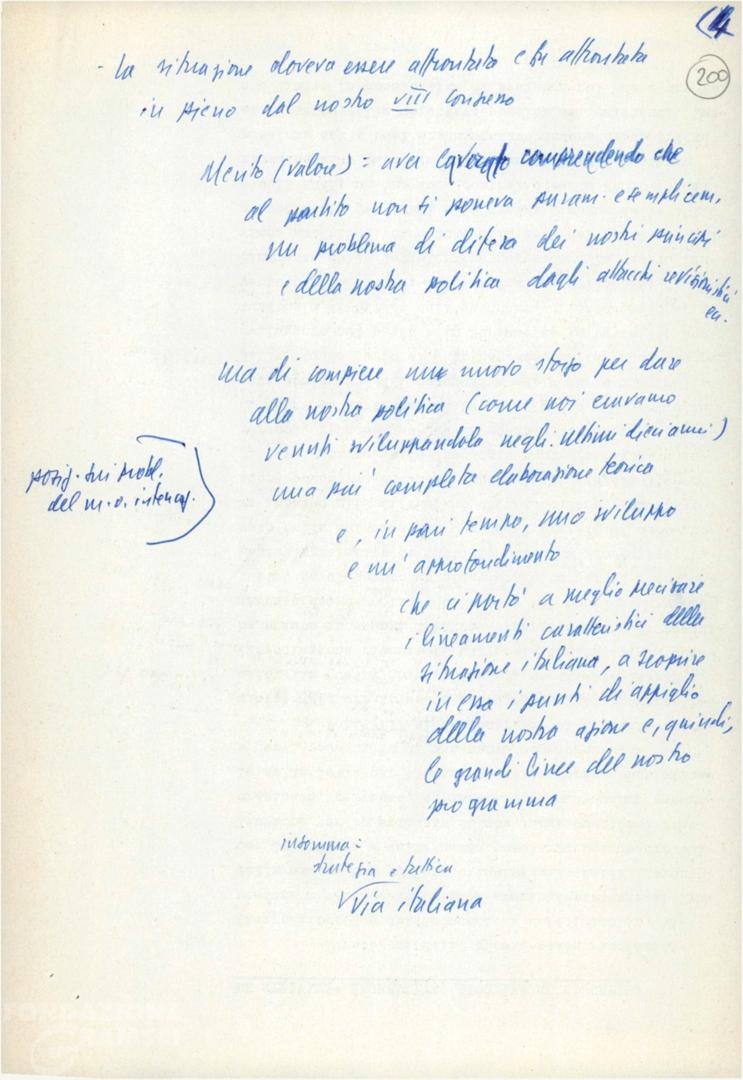 (4
200
- La situazione doveva essere affrontata e fu affrontata
in pieno dal nostro VIII congresso
Merito (valore) = aver lavorato comprendendo che
al partito non si poneva puram. e semplicem.
un problema di difesa dei nostri principi
e della nostra politica dagli attacchi revisionistici
ecc.
ma di compiere un nuovo sforzo per dare
alla nostra politica (come noi eravamo
venuti sviluppandola negli ultimi dieci anni)
una piu' completa elaborazione teorica
posiz. sui probl.
del m. o. internaz.
e, in pari tempo, uno sviluppo
e un' approfondimento
che ci portò a meglio precisare
i lineamenti caratteristici della
situazione italiana, a scoprire
in essa i punti di appiglio
della nostra azione e, quindi,
le grandi linee del nostro
programma
insomma =
strategia e tattica
Via italiana
FONDAZIONE
GRAMSCI